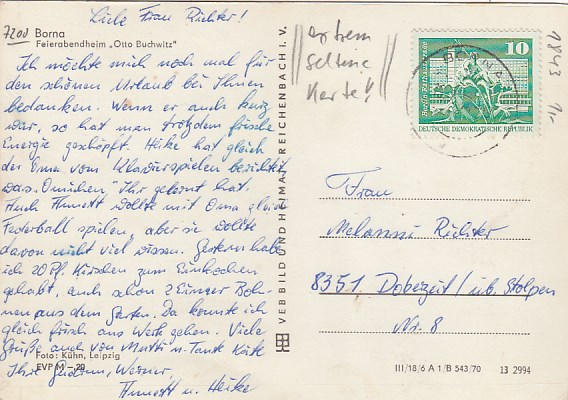 Liebe Frau Richter!
7200 Borna
Feierabendheim „Otto Buchwitz"
Ich möchte mich noch mal für
den schönen Urlaub bei Ihnen
bedanken. Wenn er auch kurz
war, so hat man trotzdem frische
Energie geschöpft. Heike hat gleich
der Oma vom Klavierspielen berichtet
was Omichen, Ihr gelernt hat.
Auch Annett wollte mit Oma gleich
Federball spielen, aber sie wollte
davon nicht viel wissen. Gestern habe
ich 20 Pf. Kirschen zum Einkochen
gehabt, auch schon 2 Eimer Boh-
nen aus dem Garten. Da konnte ich
gleich frisch ans Werk gehen. Viele
Grüße auch von Mutti u. Tante Käte
Foto: Kühn, Leipzig
Ihre Gudrun, Werner,
EVP M –.20
Annett u. Heike
VEB BILD UND HEIMAT REICHENBACH I. V.
extrem
seltene
Karte!!
BORNA
10
Berlin, Rathausstraße
DEUTSCHE DEMOKRATISCHE REPUBLIK
1843
Frau
Richter
8351 Dobezeit / üb. Stolpen
Nr. 8
III/18/6 A 1/B 543/70 13 2994